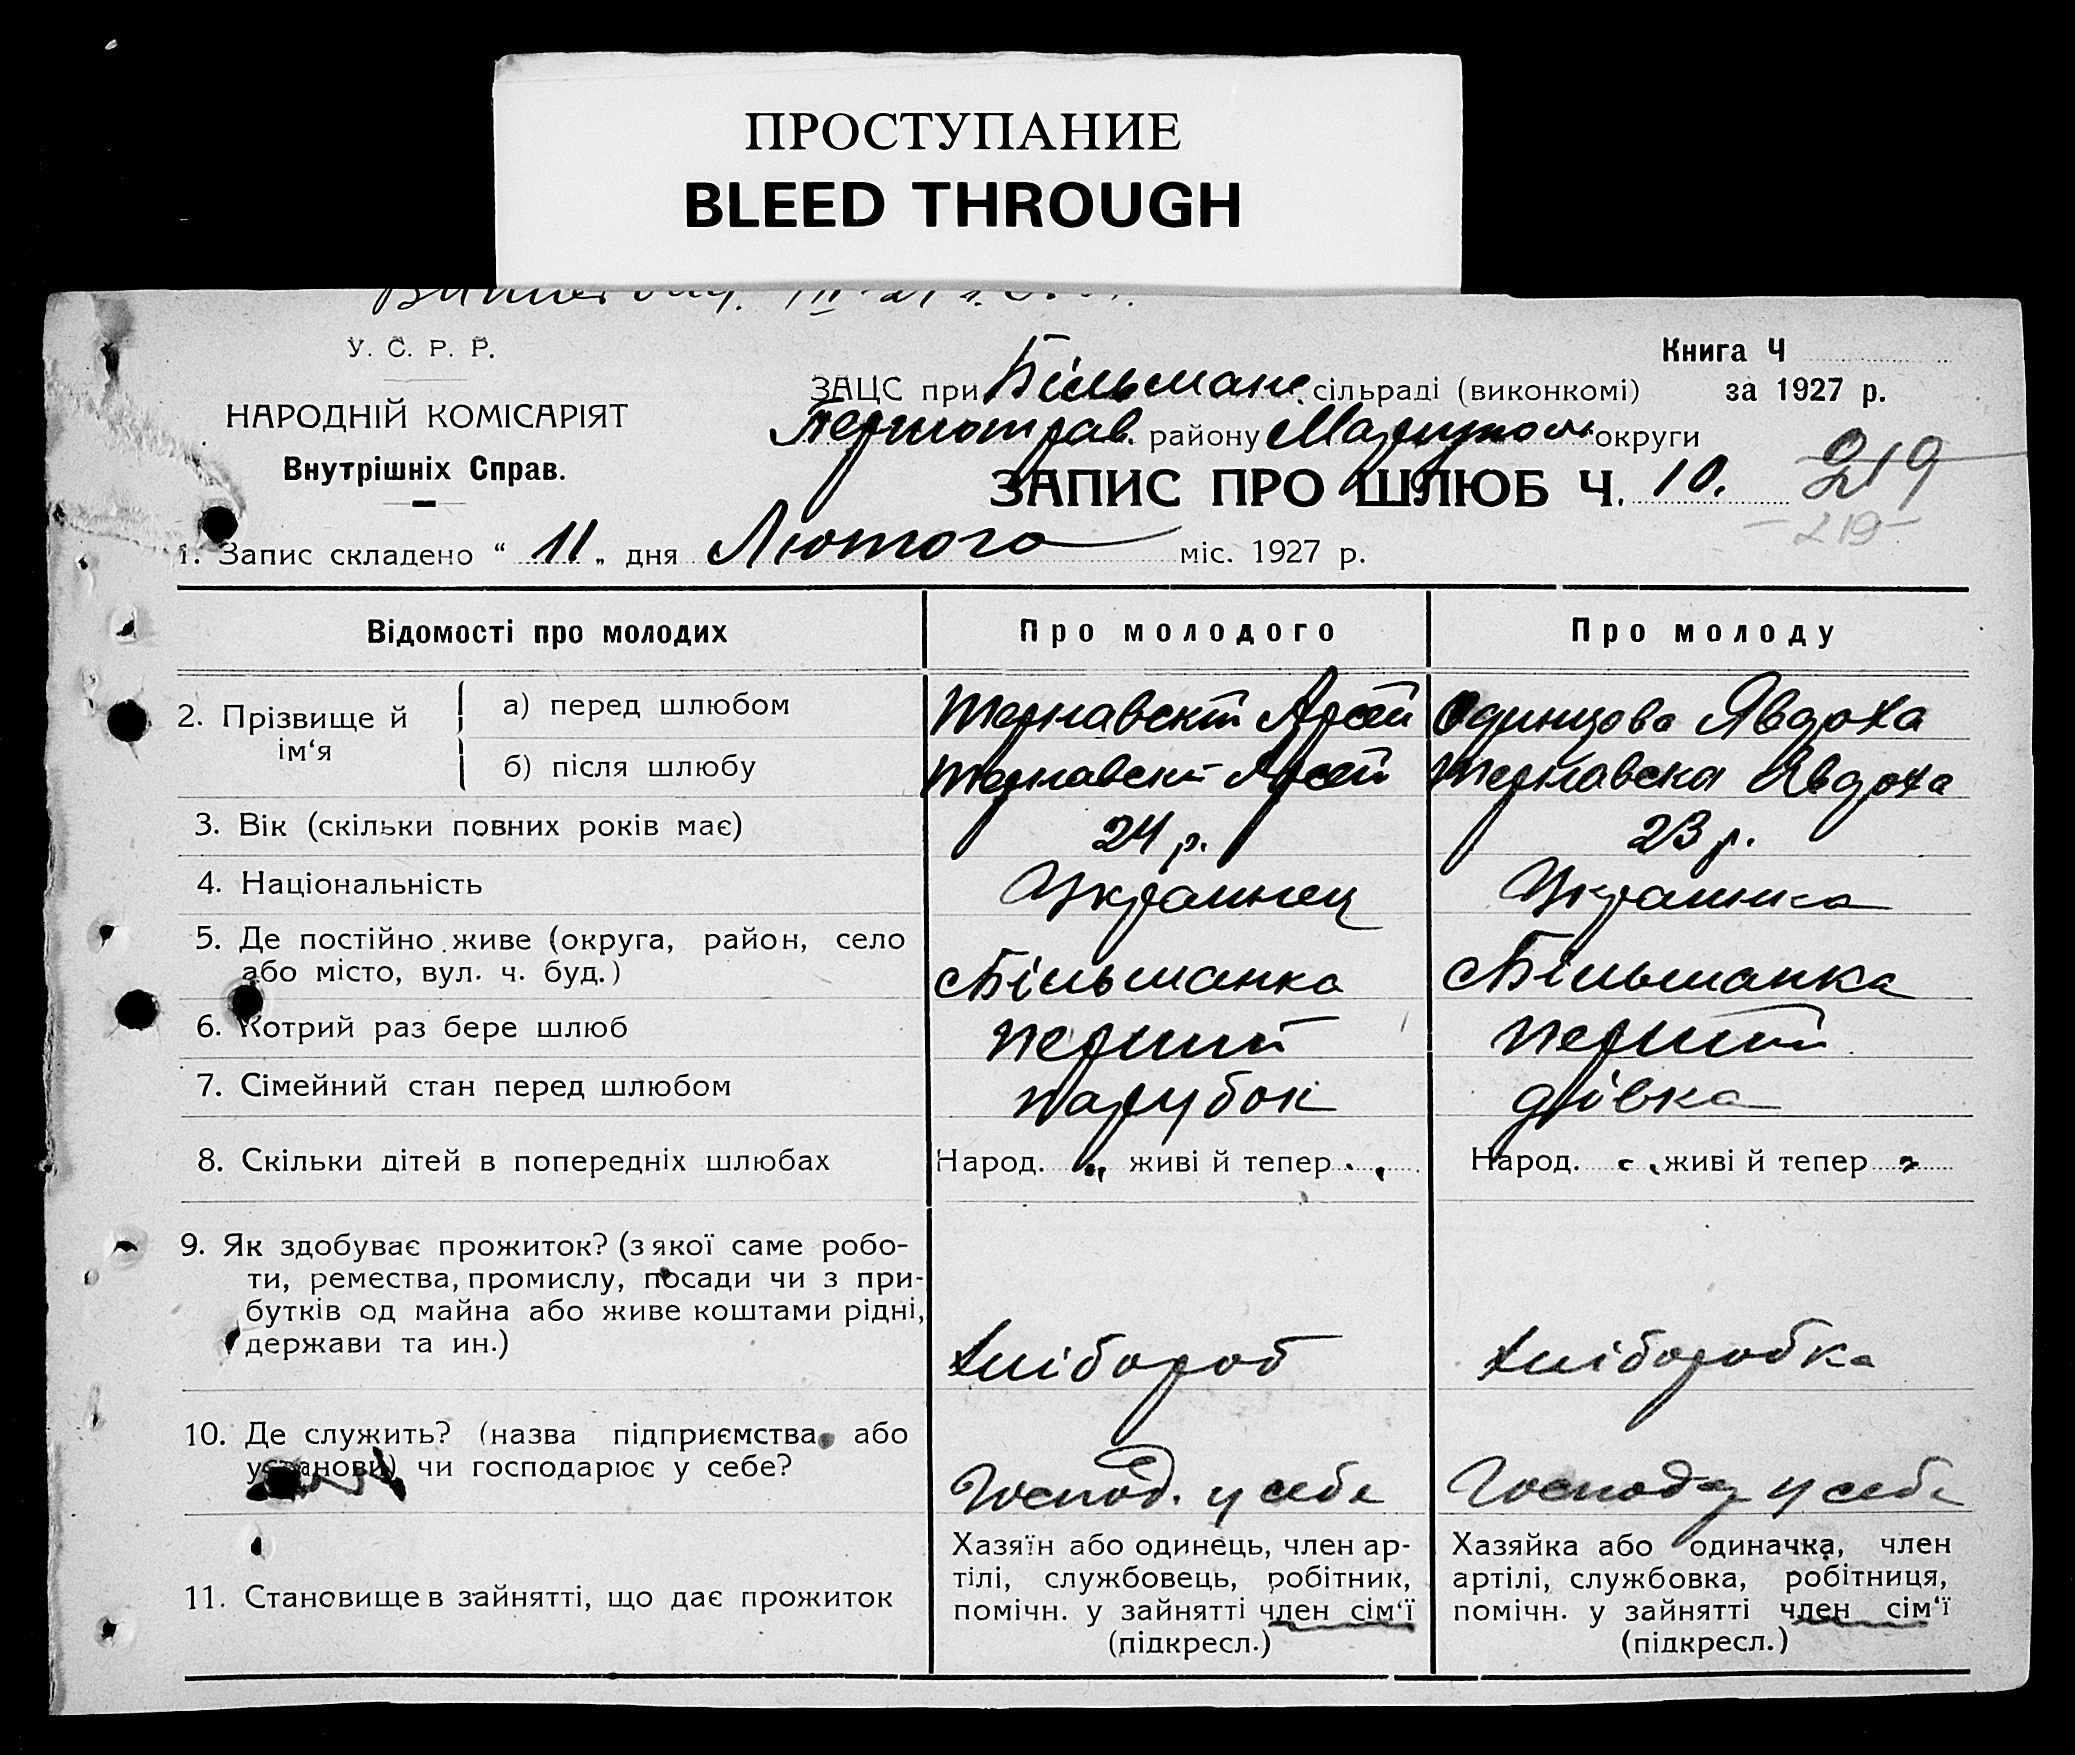 ПРОСТУПАНИЕ
BLEED THROUGH
У. С. Р. Р.
НАРОДНІЙ КОМІСАРІЯТ
Внутрішніх Справ.
Книга Ч
ЗАЦС при Більманс. сільраді (виконкомі) за 1927 р.
Першотрав. району Маріупол. округи
ЗАПИС ПРО ШЛЮБ Ч. 10. 219
- 219 -
1. Запис складено “ 11 „ дня Лютого міс. 1927 р.
Відомості про молодих Про молодого Про молоду
2. Прізвище й ім‘я
а) перед шлюбом Тернавскій Арсен Одинцова Явдоха
б) після шлюбу Тернавскій Арсен Тернавска Явдоха
3. Вік (скільки повних років має) 24 р. 23 р.
4. Національність Украинец Украинка
5. Де постійно живе (округа, район, село
або місто, вул. ч. буд.) с Більманка с Більманка
6. Котрий раз бере шлюб перший перший
7. Сімейний стан перед шлюбом парубок дівка
8. Скільки дітей в попередніх шлюбах Народ. „ живі й тепер „ Народ. „ живі й тепер „
9. Як здобуває прожиток? (з якої саме робо-
ти, ремества, промислу, посади чи з при-
бутків од майна або живе коштами рідні,
держави та ин.) Хлібороб Хліборобка
10. Де служить? (назва підприємства або
установи) чи господарює у себе? Господ. у себе Господар у себе
11. Становище в зайнятті, що дає прожиток
Хазяїн або одинець, член ар-
тілі, службовець, робітник,
помічн. у зайнятті член сім‘ї
(підкресл.)
Хазяйка або одиначка, член
артілі, службовка, робітниця,
помічн. у зайнятті член сім‘ї
(підкресл.)